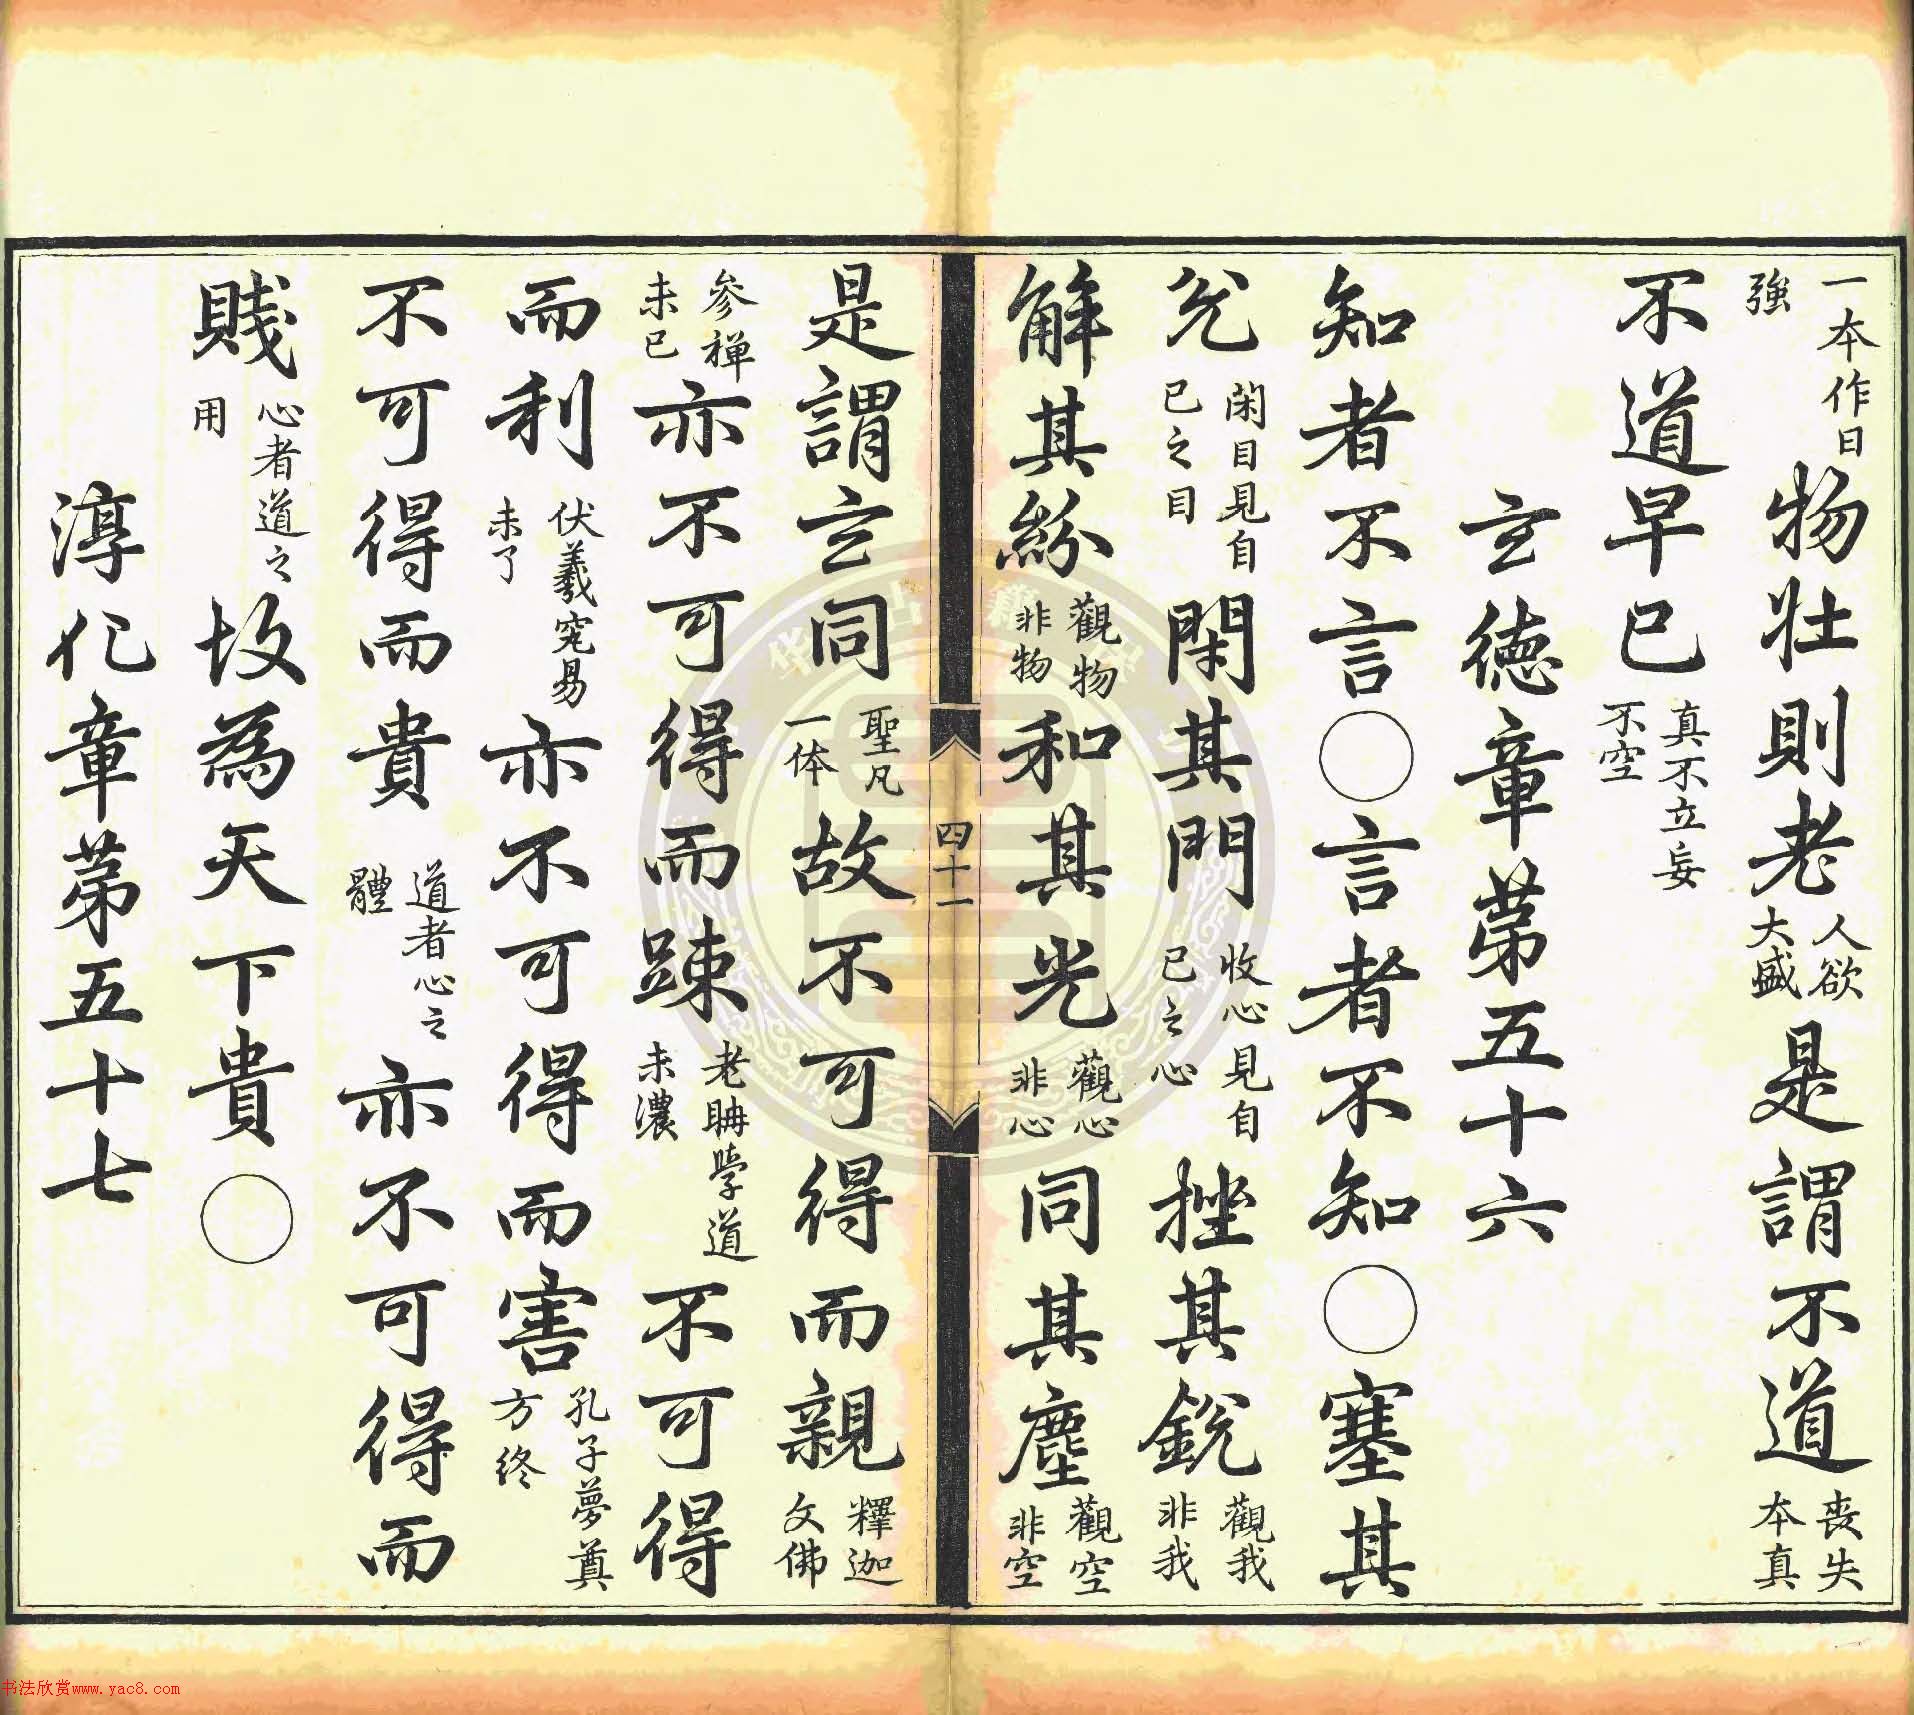 一本作日強物壯則老人欲大盛是謂不道喪失本真
不道早已真不立妄不空
玄德章第五十六
知者不言○言者不知○塞其
兌閉目見自己之目閉其門收心見自己之心挫其銳觀我非我
解其紛觀物非物和其光觀心非心同其塵觀空非空
四十一
是謂玄同聖凡一体故不可得而親釋迦文佛
參禅未已亦不可得而踈老聃學道未濃不可得
而利伏羲究易未了亦不可得而害孔子夢奠方終
不可得而貴道者心之體亦不可得而
賤心者道之用故為天下貴○
淳化章第五十七
书法欣赏www.yac8.com